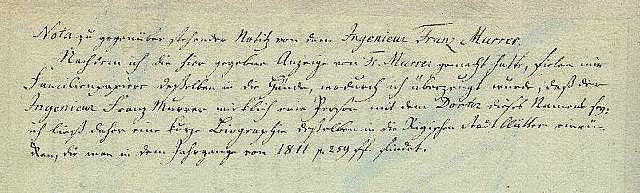 Nota zu gegenüber stehender Notiz von dem Ingenieur Franz Murrer.
Nachdem ich die hier gegebene Anzeige von Fr. Murrer gemacht hatte, fielen mir
Familienpapiere desselben in die Hände, wodurch ich überzeugt wurde, daß der
Ingenieur Franz Murrer wirklich eine Person mit dem Doctor dieses Namens sey;
ich ließ daher eine kurze Biographie desselben in die Stadt Blätter einrü-
cken, die man in dem Jahrgange von 1811 p. 259 ff. findet.